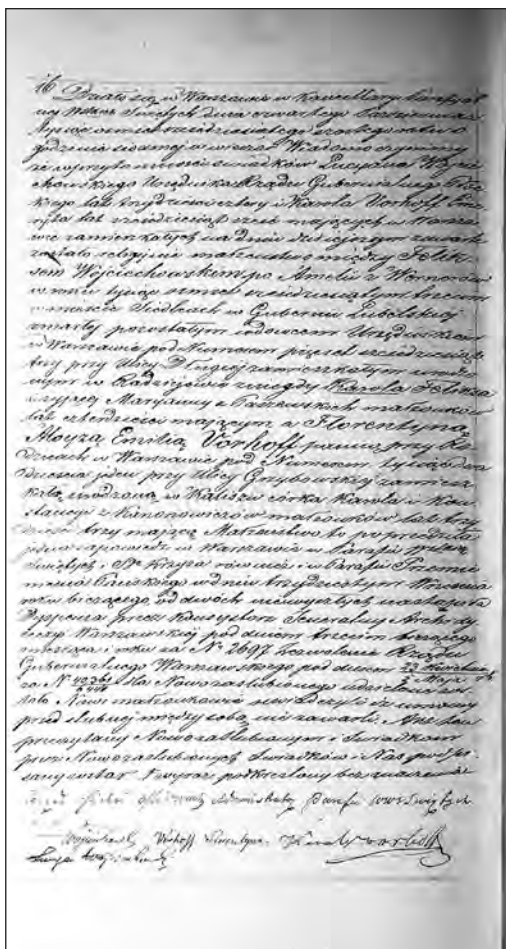 16 Działo się w Warszawie w Kancellaryi Parafijal
nej Wszech Świętych dnia czwartego Października
tysiąc ośmset sześćdziesiątego szóstego roku o
godzinie siódmej w wieczór Wiadomo czynimy
że w przytomności świadków Lucyana Wojcie
chowskiego Urzędnika Rządu Gubernialnego
lat trzydzieści cztery i Karola Vorhoff
lat sześćdziesiąt sześć mających w Warsza
wie zamieszkałych na dniu dzisiejszym zawarte
zostało religijne małżeństwo między Felik
sem Wojciechowskim po Amelii z Wernerów
w roku tysiąc ośmset sześćdziesiątym trzecim
w mieście Siedlcach w Gubernii Lubelskiej
zmarłej pozostałym wdowcem Urzędnikiem
w Warszawie pod Numerem pięćset sześćdziesiąt
trzy przy Ulicy Długiej zamieszkałym urodzo
nym w Radziejowie z niegdy Karola Felixa
i żyjącej Maryanny z małżonków
lat czterdzieści mającym a Florentyną
Aloyzą Emilią Vorhoff panną przy Ro
dzicach w Warszawie pod Numerem tysiąc dwa
dzieścia jeden przy Ulicy Grzybowskiej zamiesz
kałą urodzoną w Kaliszu córką Karola i Kon
stancyi z Kunonowiczów małżonków lat trzy
dzieści trzy mającą Małżeństwo to poprzedziła
jedna zapowiedź w Warszawie w Parafii Wszech
Świętych i Sgo Krzyża również i w Parafii Przemie
nienia Pańskiego w dniu trzydziestym Września
roku bieżącego, od dwóch niewyszłych nastąpiła
Dyspensa przez Konsystorz Jeneralny Archidy
ecezyi Warszawskiej pod dniem trzecim bieżącego
miesiąca i roku za N 2697. Zezwolenie Rządu
Gubernialnego Warszawskiego pod dniem 23 Kwietnia
za N dla Nowozaślubionego udzielone zos
tało Nowi małżonkowie oświadczyli iż umowy
przedślubnej między sobą nie zawarli. Akt ten
przeczytany Nowozaślubionym i Świadkom
przez Nowozaślubionych Świadków i Nas podpi
sany został
Wojciechowski Vorhoff Florentyna. Karol Vorhoff
Lucyan Wojciechowski